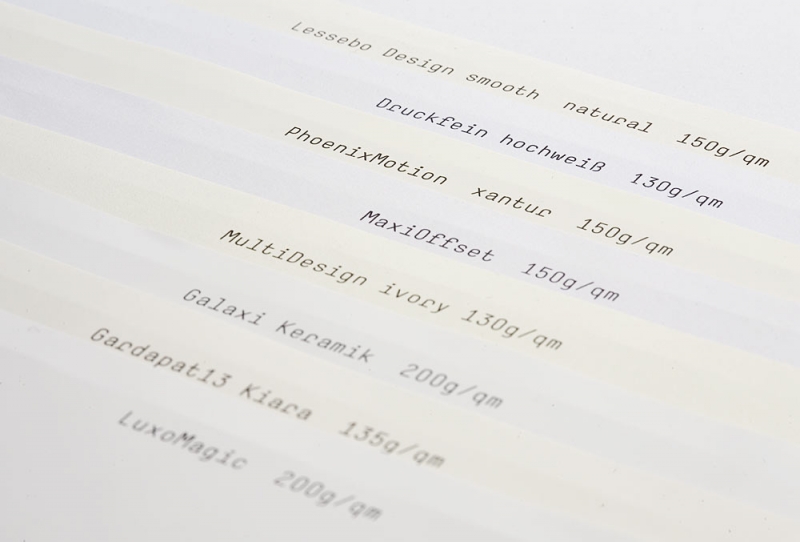 Lessebo Design smooth natural 150g/qm
Druckfein hochweiß 130g/qm
PhoenixMotion xantur 150g/qm
MaxiOffset 150g/qm
MultiDesign ivory 130g/qm
Galaxi Keramik 200g/qm
Gardapat13 Kiara 135g/qm
LuxoMagic 200g/qm